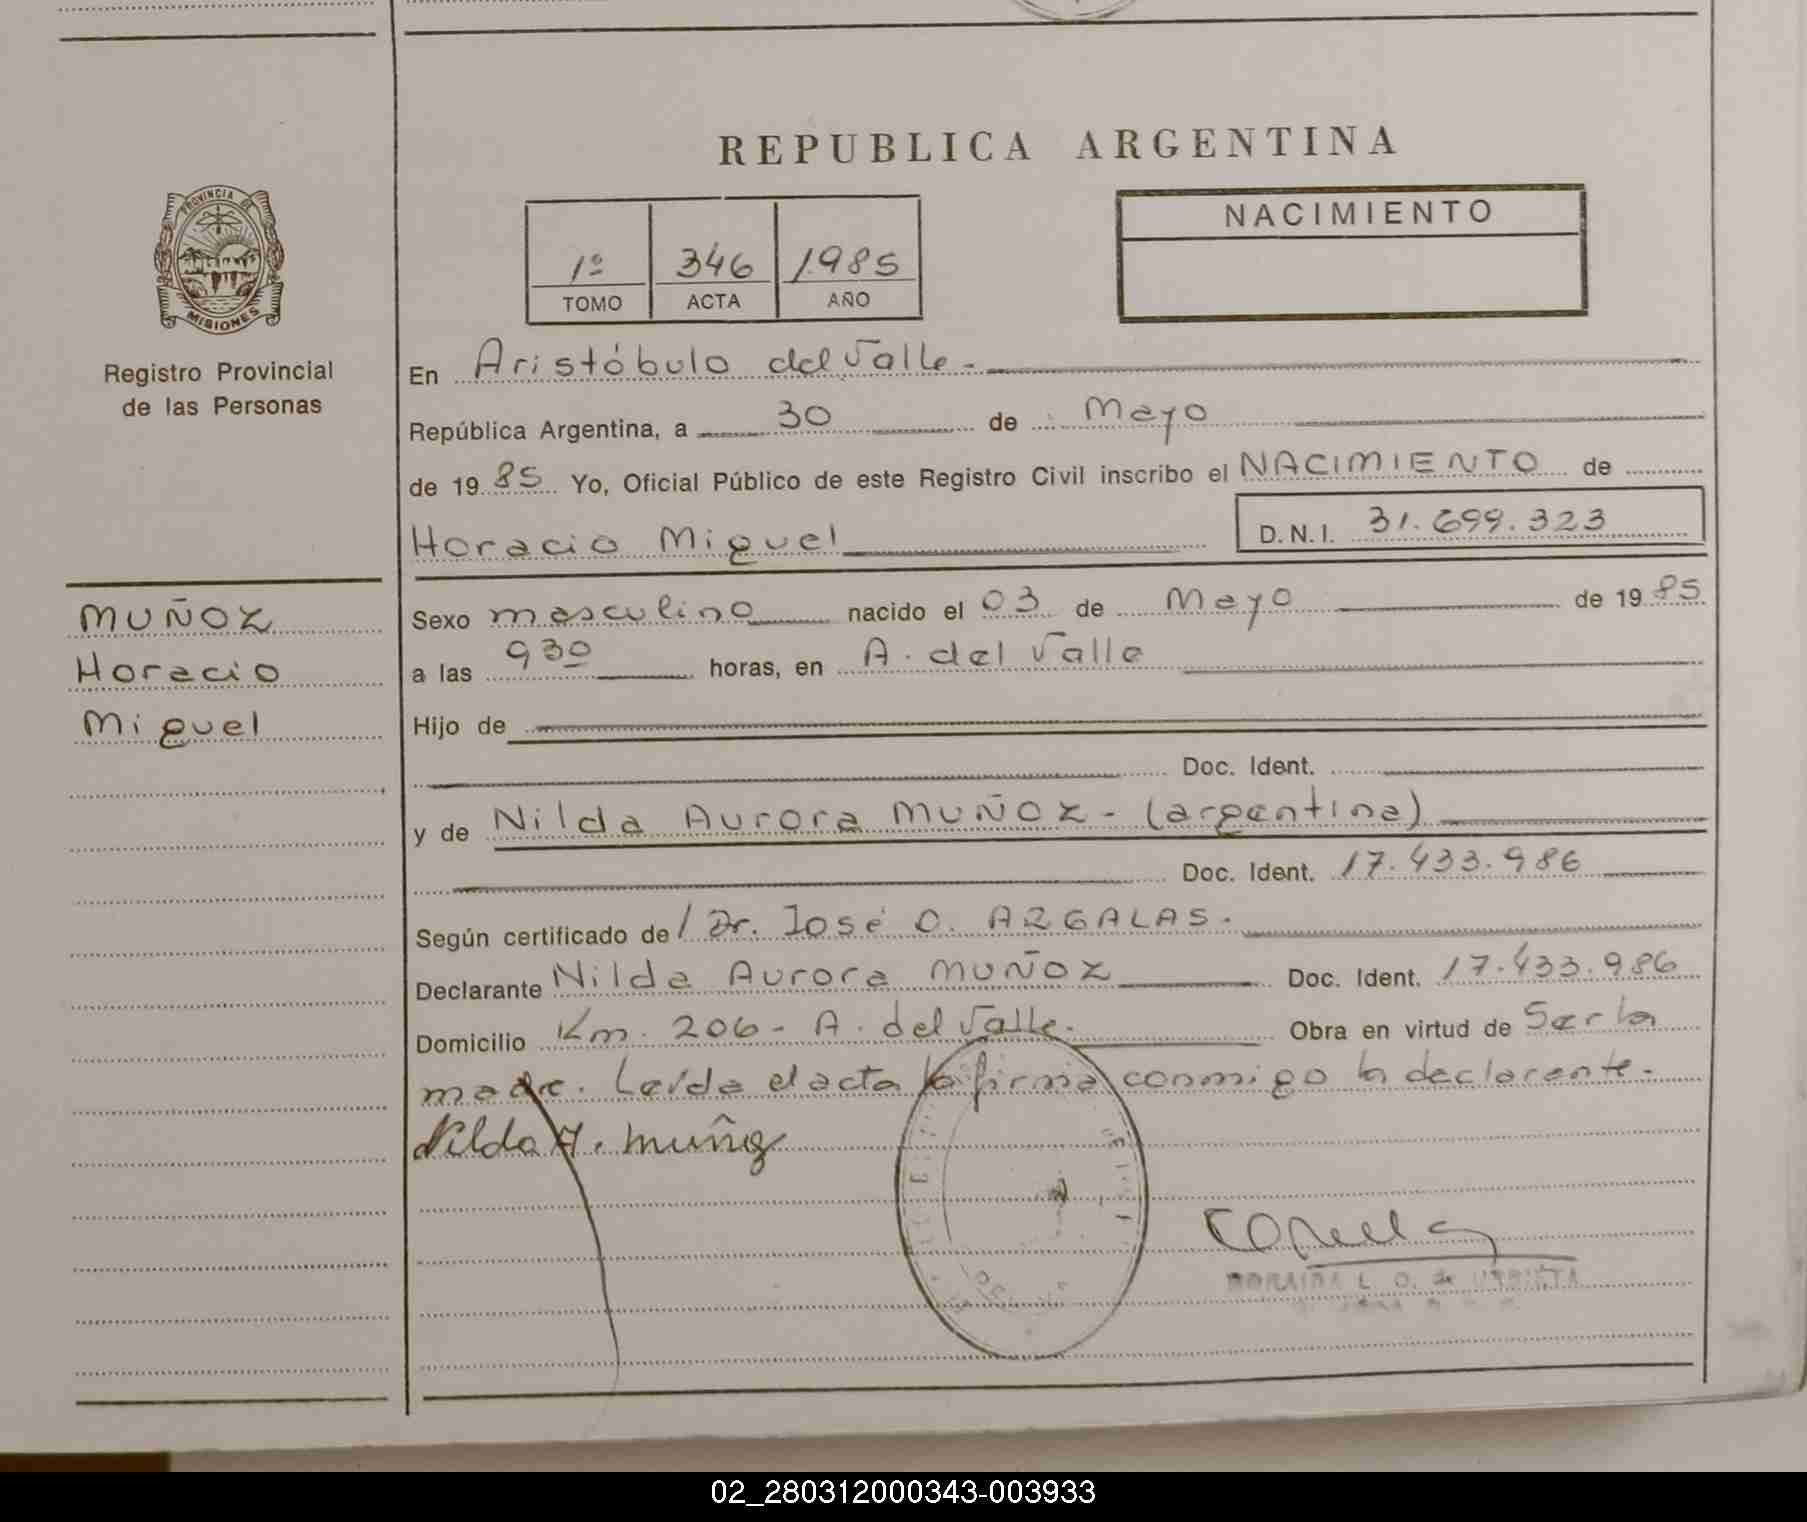 REPUBLICA ARGENTINA
PROVINCIA DE
MISIONES
Registro Provincial
de las Personas
1º 346 1985
TOMO ACTA AÑO
NACIMIENTO
En Aristóbulo del Valle.-
República Argentina, a 30 de Mayo
de 19 85 Yo, Oficial Público de este Registro Civil inscribo el NACIMIENTO de
Horacio Miguel D.N.I. 31.699.323
MUÑOZ
Horacio
Miguel
Sexo masculino nacido el 03 de Mayo de 19 85
a las 930 horas, en A. del Valle
Hijo de
Doc. Ident.
y de Nilda Aurora MUÑOZ - (argentina)
Doc. Ident. 17.433.986
Según certificado de / Dr. José O. ARGALAS.
Declarante Nilda Aurora MUÑOZ Doc. Ident. 17.433.986
Domicilio Km. 206 - A. del Valle. Obra en virtud de Ser la
madre. Leída el acta la firma conmigo la declarante.-
Nilda A. Muñoz
L. O. de
02_280312000343-003933